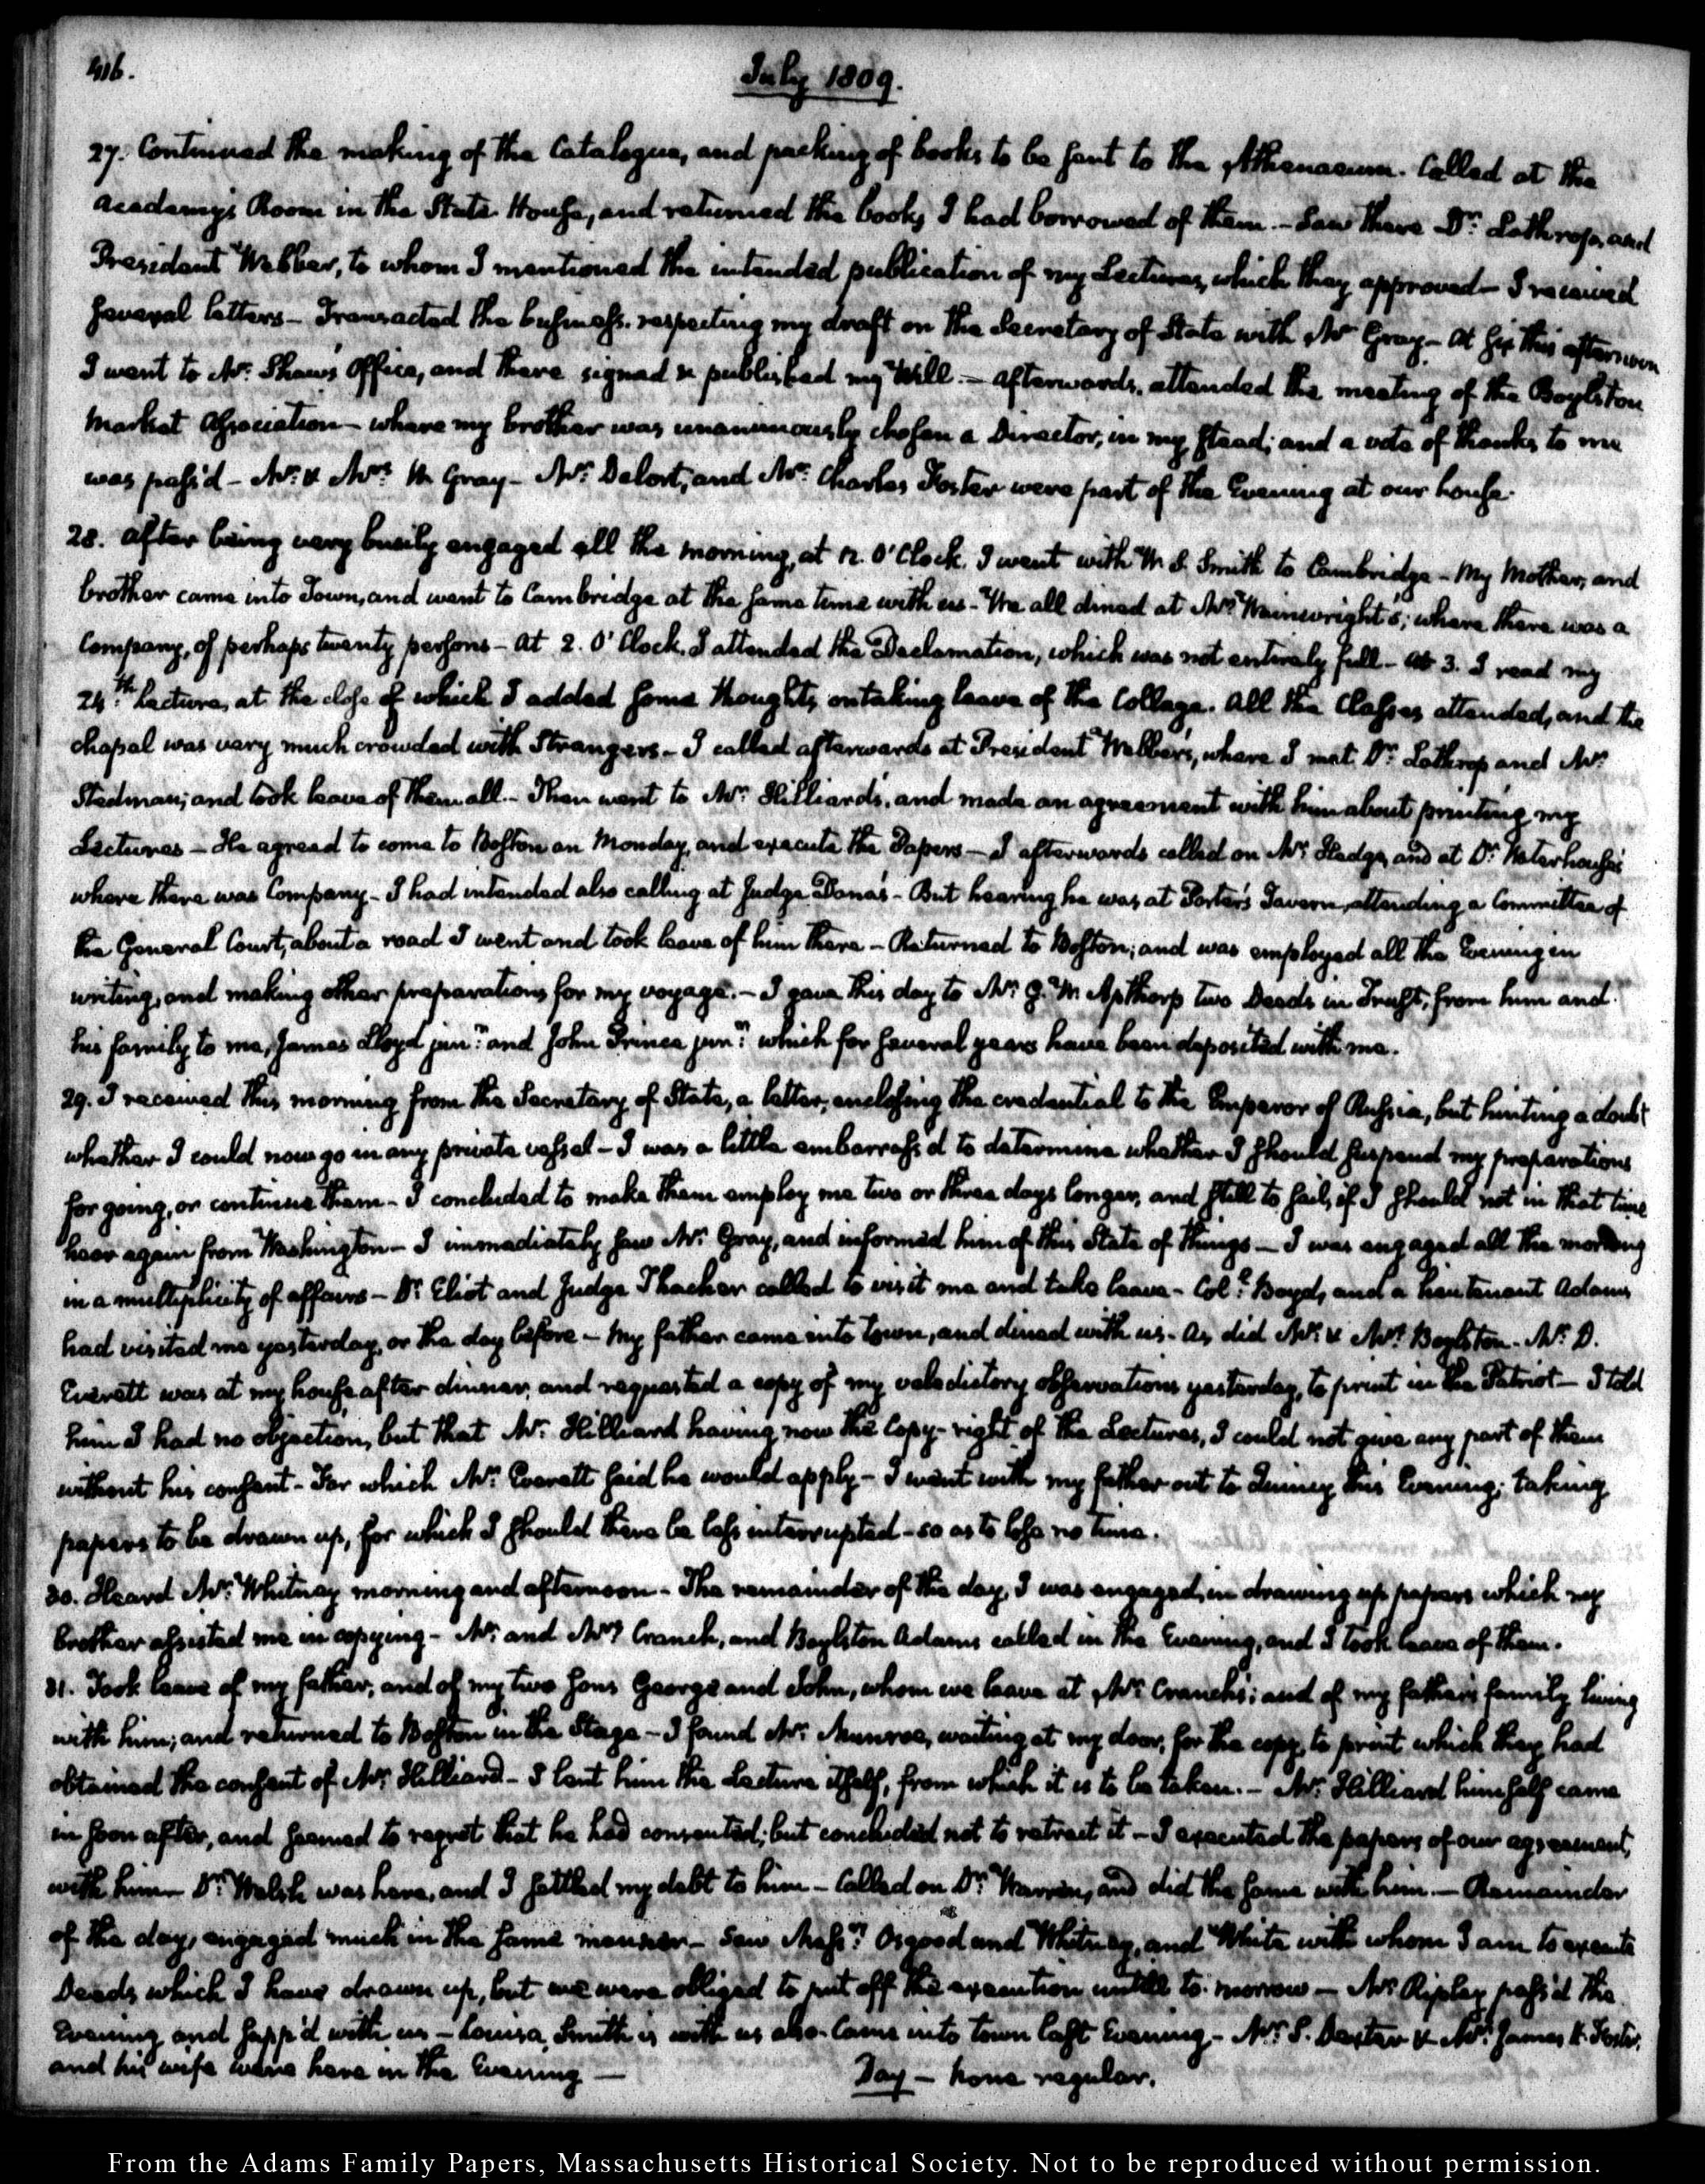 416.
July 1809.
27. Continued the making of the Catalogue, and packing of books to be sent to the Athenaeum. Called at the
Academy's Room in the State House, and returned the books I had borrowed of them. - Saw there Dr. Lothrop, and
President Webber, to whom I mentioned the intended publication of my Lectures, which they approved - I received
several letters - Transacted the business respecting my draft on the Secretary of State with Mr Gray - At six this afternoon
I went to Mr. Shaw's Office, and there signed & published my Will. - Afterwards, attended the meeting of the Boylston
Market Association - where my brother was unanimously chosen a Director, in my stead; and a vote of thanks to me
was pass'd - Mr. & Mrs. W. Gray - Mr. Delort, and Mr. Charles Foster were part of the Evening at our house.
28. After being very busily engaged all the morning, at 12. O'Clock. I went with W. S. Smith to Cambridge - My Mother, and
brother came into Town, and went to Cambridge at the same time with us - We all dined at Mrs. Wainwright's; where there was a
Company, of perhaps twenty persons - At 2. O'Clock. I attended the Declamation, which was not entirely full - At 3. I read my
24th. Lecture, at the close of which I added some thoughts, on taking leave of the College. All the Classes attended, and the
chapel was very much crowded with Strangers - I called afterwards at President Webber's, where I met Dr. Lothrop and Mr.
Stedman; and took leave of them all. - Then went to Mr. Hilliard's, and made an agreement with him about printing my
Lectures - He agreed to come to Boston on Monday, and execute the Papers - I afterwards called on Mr. Hedge, and at Dr. Waterhouse's
where there was Company - I had intended also calling at Judge Dana's - But hearing he was at Porter's Tavern, attending a Committee of
the General Court, about a road I went and took leave of him there - Returned to Boston; and was employed all the Evening in
writing, and making other preparations for my voyage. - I gave this day to Mr. G. W. Apthorp two Deeds in Trust, from him and
his family to me, James Lloyd junr. and John Prince junr. which for several years have been deposited with me.
29. I received this morning from the Secretary of State, a letter, enclosing the credential to the Emperor of Russia, but hinting a doubt
whether I could now go in any private vessel - I was a little embarrass'd to determine whether I should suspend my preparations
for going, or continue them - I concluded to make them employ me two or three days longer, and still to sail, if I should not in that time
hear again from Washington - I immediately saw Mr. Gray, and informed him of this State of things - I was engaged all the morning
in a multiplicity of affairs - Dr. Eliot and Judge Thacher called to visit me and take leave - Coll. Boyd, and a Lieutenant Adams
had visited me yesterday, or the day before - My father came into town, and dined with us - As did Mr. & Mrs. Boylston. Mr. D.
Everett was at my house after dinner, and requested a copy of my valedictory observations yesterday, to print in the Patriot - I told
him I had no objection, but that Mr. Hilliard having now the Copy-right of the Lectures, I could not give any part of them
without his consent - For which Mr. Everett said he would apply - I went with my father out to Quincy this Evening; taking
papers to be drawn up, for which I should there be less interrupted - so as to lose no time.
30. Heard Mr. Whitney morning and afternoon - The remainder of the day, I was engaged, in drawing up papers which my
brother assisted me in copying - Mr. and Mrs. Cranch, and Boylston Adams called in the Evening, and I took leave of them.
31. Took leave of my father, and of my two sons George and John, whom we leave at Mr. Cranch's; and of my father's family living
with him; and returned to Boston in the Stage - I found Mr. Munroe, waiting at my door, for the copy, to print which they had
obtained the consent of Mr. Hilliard - I lent him the Lecture itself, from which it is to be taken. - Mr. Hilliard himself came
in soon after, and seemed to regret that he had consented; but concluded not to retract it - I executed the papers of our agreement,
with him - Dr. Welsh was here, and I settled my debt to him - Called on Dr. Warren, and did the same with him. - Remainder
of the day, engaged much in the same manner - Saw Messrs. Osgood and Whitney, and White with whom I am to execute
Deeds which I have drawn up, but we were obliged to put off the execution untill to-morrow - Mr. Ripley pass'd the
Evening and supp'd with us - Louisa Smith is with us also - Came into town last Evening - Mr. S. Dexter & Mr. James H. Foster,
and his wife were here in the Evening -
Day - none regular.
From the Adams Family Papers, Massachusetts Historical Society. Not to be reproduced without permission.